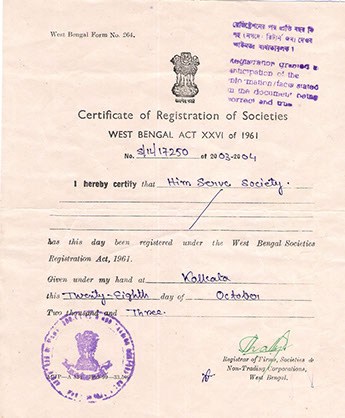 West Bengal Form No. 264.
রেজিস্ট্রেশনের পর প্রতি বছর
Registration granted in
anticipation of the
information/facts stated
in the document being
correct and true
Certificate of Registration of Societies
WEST BENGAL ACT XXVI of 1961
No. S/1L/17250 of 2003-2004
I hereby certify that Him Serve Society.
has this day been registered under the West Bengal Societies
Registration Act, 1961.
Given under my hand at Kolkata
this Twenty-Eighth day of October
Two thousand and Three.
Registrar of Firms, Societies &
Non-Trading Corporations,
West Bengal.